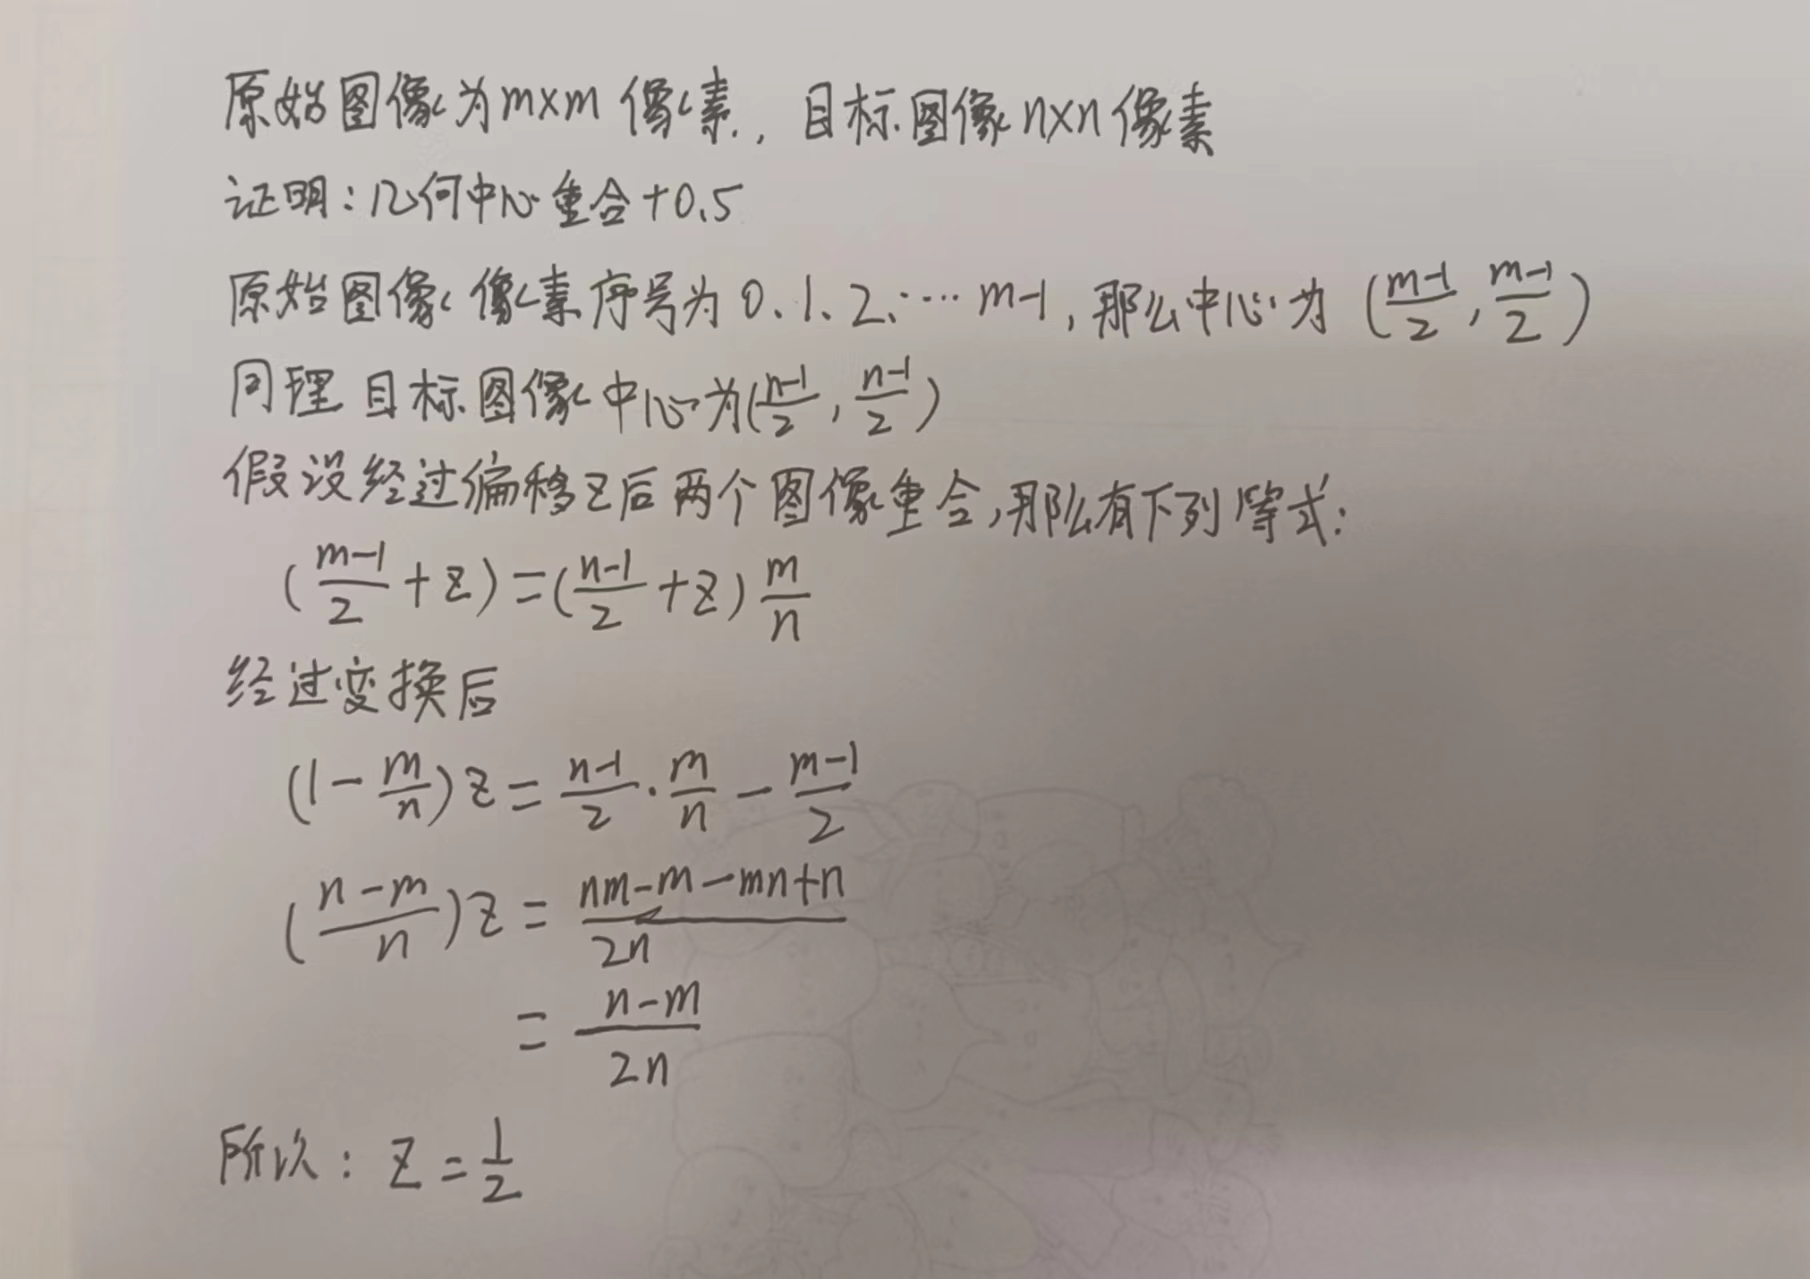 原始图像为m×m 像素, 目标图像n×n像素
证明:几何中心重合+0.5
原始图像像素序号为 0、1、2、…… m-1, 那么中心为 (\frac{m-1}{2}, \frac{m-1}{2})
同理目标图像中心为(\frac{n-1}{2}, \frac{n-1}{2})
假设经过偏移z后两个图像重合,那么有下列等式:
(\frac{m-1}{2}+z)=(\frac{n-1}{2}+z)\frac{m}{n}
经过变换后
(1-\frac{m}{n})z=\frac{n-1}{2}·\frac{m}{n}-\frac{m-1}{2}
(\frac{n-m}{n})z=\frac{nm-m-mn+n}{2n}
=\frac{n-m}{2n}
所以: z=\frac{1}{2}